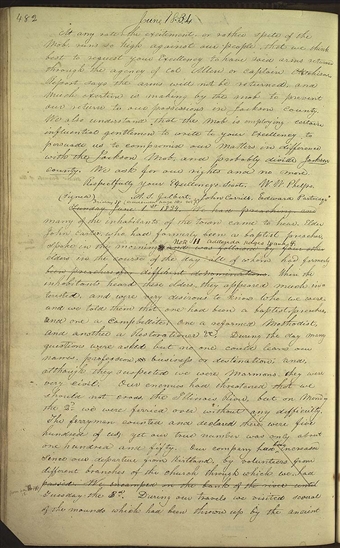 482
June 1834
At any rate the excitement, or rather spite of the
Mob runs so high against our people, that we think
best to request your Excellency to have said arms returned
through the agency of Col. Allen or captain Atchison.
Report says the arms will not be returned, and
much exertion is making by the mob to prevent
our return to our possessions in Jackson County.
We also understand that the mob is employing certain
influential gentlemen to write to your Excellency, to
persuade us to compromise our matters in difference
with the Jackson Mob, and probably divide Jackson
county. We ask for our rights and no more
Respectfully your Excellency's Servts. W. W. Phelps
(Signed) A. S. Gilbert, John Corrill, Edward Partridge
many of the inhabitants of the town came to hear. Elder
John Carter, who had formerly been a baptist preacher,
spoke in the morning and was followed by
elders in the course of the day all of whom had formerly
been preachers of different denominations. When the
inhabitants heard these elders they appeared much in-
terested, and were very desirous to know who we were
and we told them that one had been a baptist preacher,
and one a Campbellite; One a reformed Methodist,
and another a restorationer &c. During the day many
questions were asked but no one could learn our
names, profession, business or destination, and,
although they suspected we were Mormons, they were
very civil. Our enemies had threatened that we
should not cross the Illinois river, but on Monday
the 2d we were ferried over without any difficulty.
The ferryman counted and declared there were five
hundred of us; yet our true number was only about
one hundred and fifty. Our company had been increased
since our departure from Kirtland, by volunteers from
different branches of the church through which we had
passed. We encamped on the bank of the river until
Tuesday the 3d. During our travels we visited several
of the mounds which had been thrown up by the ancient